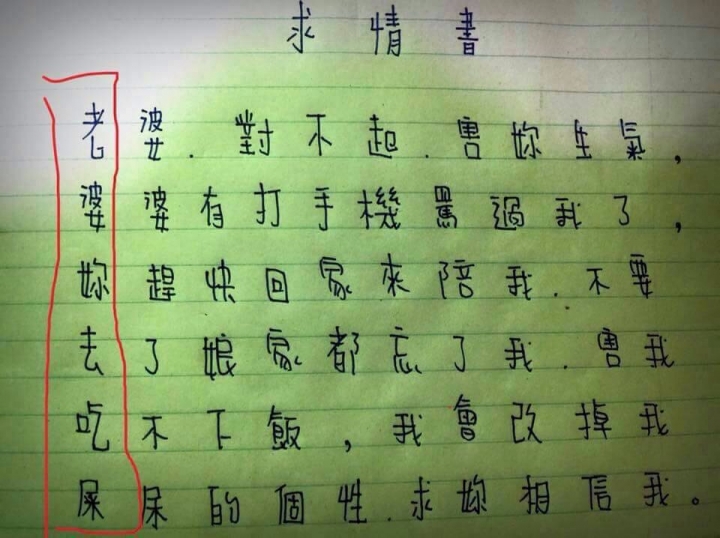 求情書
老婆.對不起.害妳生氣,
婆婆有打手機罵過我了,
妳趕快回家來陪我.不要
去了娘家都忘了我.害我
吃不下飯,我會改掉我
屎呆的個性.求妳相信我。